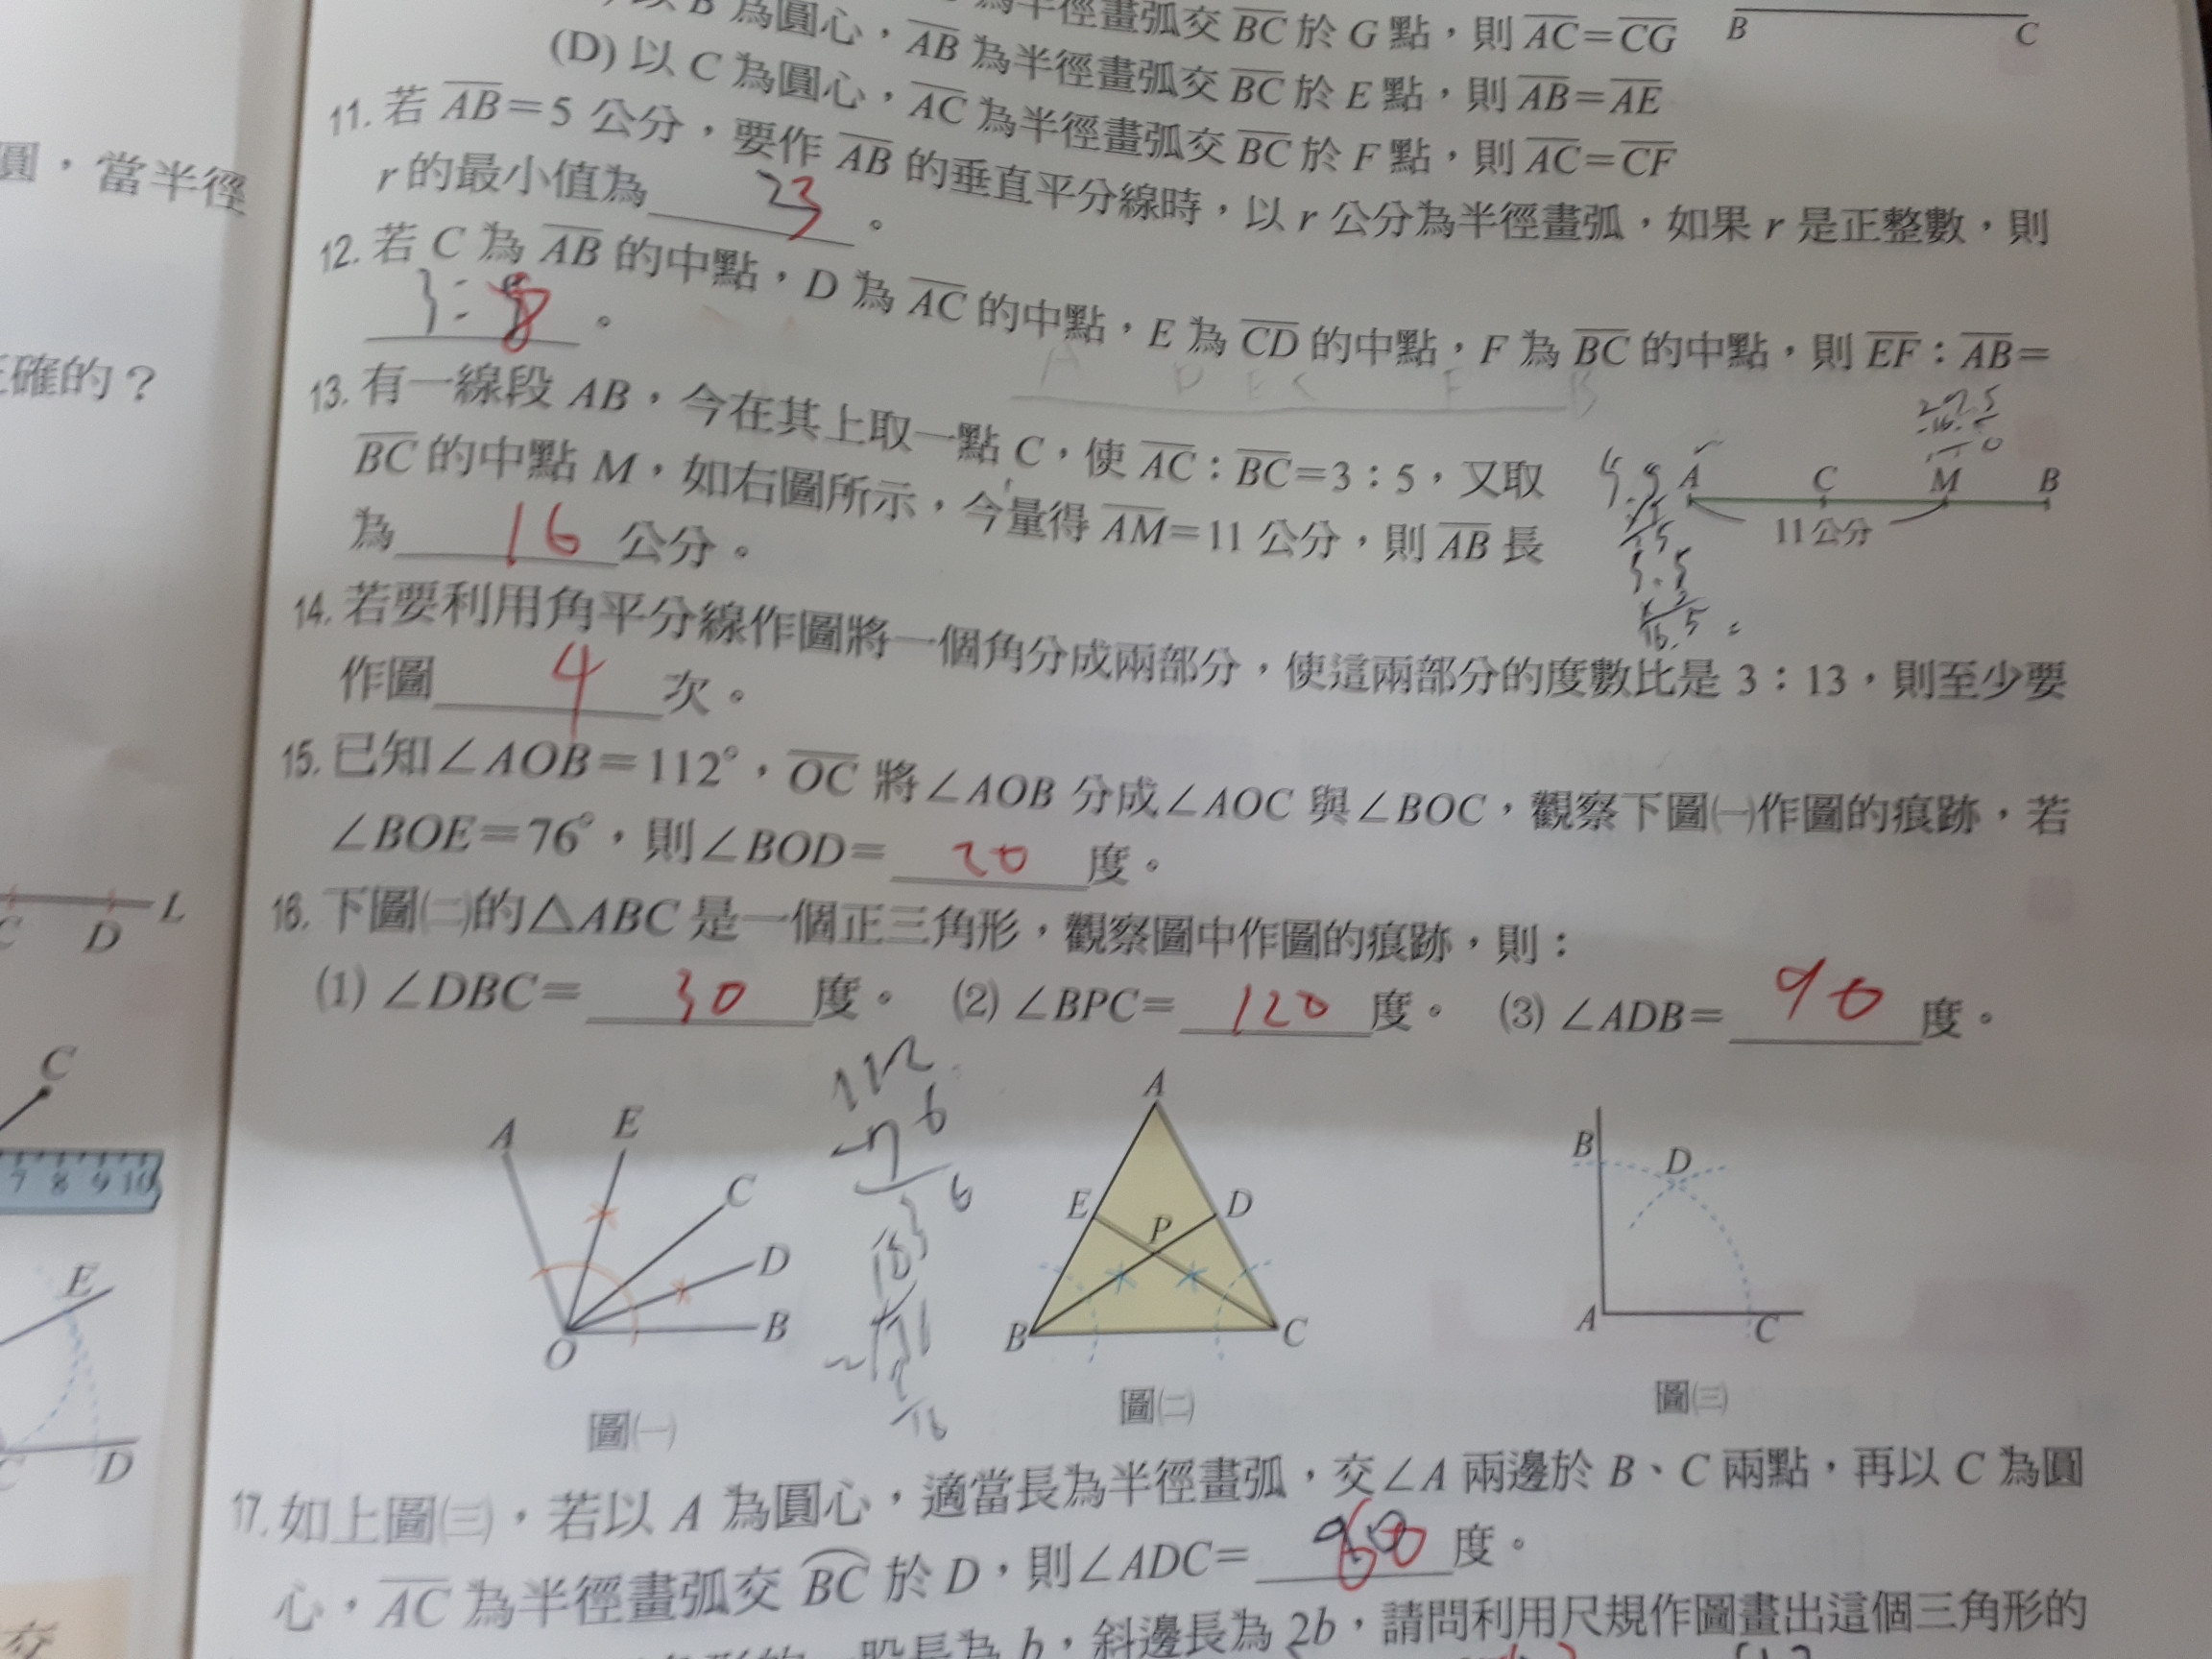 為半徑畫弧交 BC 於 G 點,則 AC=CG
B 為圓心,AB 為半徑畫弧交 BC 於 E 點,則 AB=AE
(D) 以 C 為圓心,AC 為半徑畫弧交 BC 於 F 點,則 AC=CF
B C
11. 若 AB=5 公分,要作 AB 的垂直平分線時,以 r 公分為半徑畫弧,如果 r 是正整數,則
r 的最小值為 3 。
12. 若 C 為 AB 的中點,D 為 AC 的中點,E 為 CD 的中點,F 為 BC 的中點,則 EF:AB=
3:8 。
A D E C F B
13. 有一線段 AB,今在其上取一點 C,使 AC:BC=3:5,又取
BC 的中點 M,如右圖所示,今量得 AM=11 公分,則 AB 長
為 16 公分。
A C M B
11 公分
14. 若要利用角平分線作圖將一個角分成兩部分,使這兩部分的度數比是 3:13,則至少要
作圖 4 次。
15. 已知∠AOB=112°,OC 將∠AOB 分成∠AOC 與∠BOC,觀察下圖㈠作圖的痕跡,若
∠BOE=76°,則∠BOD= 20 度。
16. 下圖㈡的△ABC 是一個正三角形,觀察圖中作圖的痕跡,則:
(1) ∠DBC= 30 度。 (2) ∠BPC= 120 度。 (3) ∠ADB= 90 度。
A E C D B O
圖㈠
A E D P B C
圖㈡
B D A C
圖㈢
17. 如上圖㈢,若以 A 為圓心,適當長為半徑畫弧,交∠A 兩邊於 B、C 兩點,再以 C 為圓
心,AC 為半徑畫弧交 BC 於 D,則∠ADC= 60 度。
一股長為 b,斜邊長為 2b,請問利用尺規作圖畫出這個三角形的
圓,當半徑
確的?
C D L
C
7 8 9 10
E
C D
交